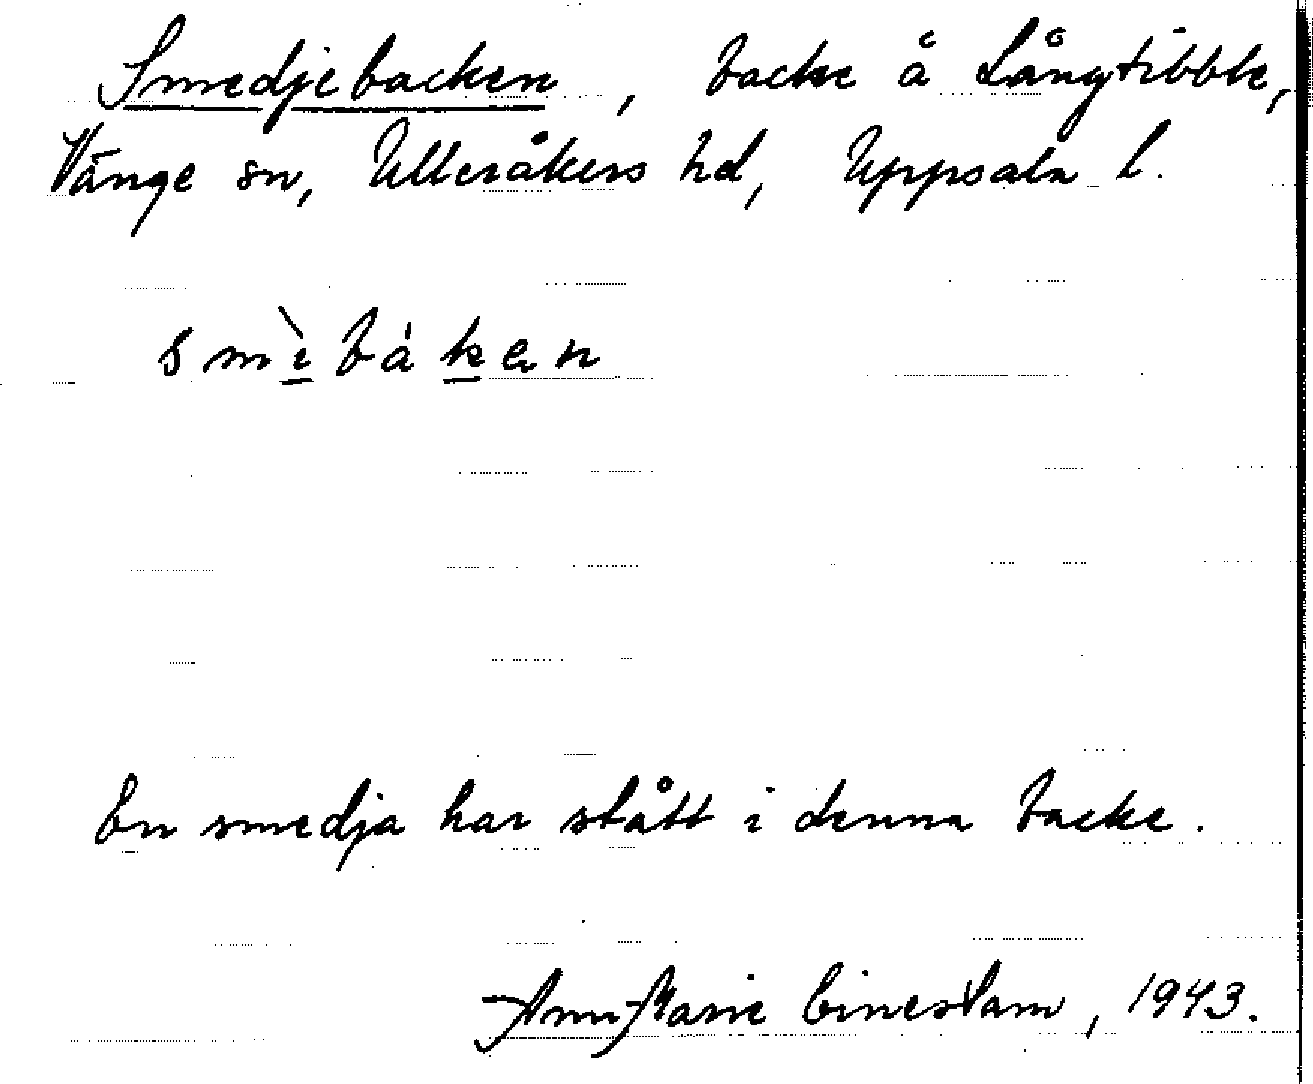 Smedjebacken, backe å Långtibble,
Vänge sn, Ulleråkers hd, Uppsala l.
smìbáken
En smedja har stått i denna backe.
Ann-Marie , 1943.